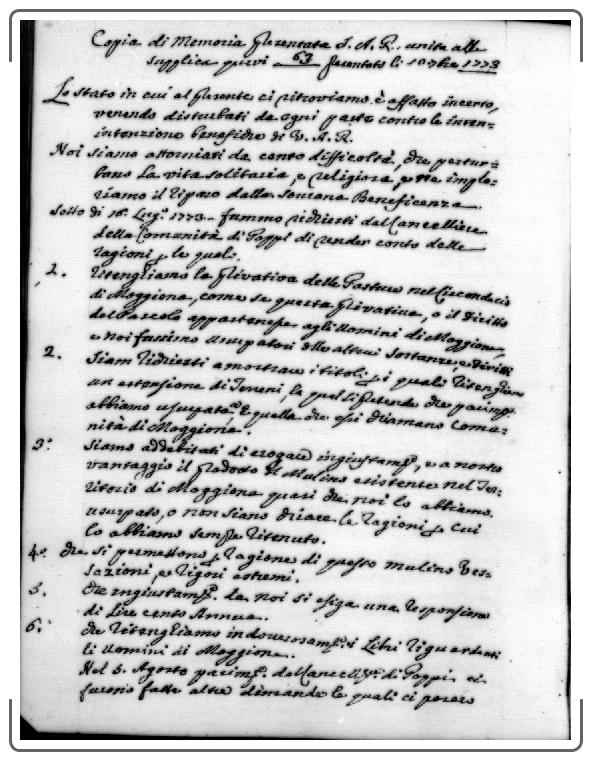 Copia di Memoria presentata S. A. R. unita alle
supplica 63 presentata li 10 7bre 1773
Lo stato in cui al presente ci ritroviamo è affatto incerto,
venendo disturbati da ogni parte contro le inten=
intenzione benefiche di V. A. R.
Noi siamo attorniati da cento difficoltà, che pertur=
bano la vita solitaria, e religiosa, implo=
riamo il riparo dalla Sovrana Beneficenza.
Sotto di 16. Lug. 1773. fummo richiesti dal Cancelliere
della Comunità di Poppi di render conto delle
ragioni, p le quali.
1. Ritenghiamo la privativa delle Pasture nel Circondario
di Moggiona, come se questa privativa, o il diritto
del Pascolo appartenesse agli Uomini di Moggiona,
e noi fussimo usurpatori delle altrui sostanze, e diritti
2. Siam richiesti a mostrare i titoli p i quali ritenghiamo
un estensione di Terreni, la quale si pretende che
abbiamo usurpata. E quella che essi chiamano Comu=
nità di Moggiona.
3.° Siamo addebitati di erogare ingiustam.e, e a nostro
vantaggio il prodotto di Mulino esistente nel Ter=
ritorio di Moggiona quasi che noi lo abbiamo
usurpato, o non siano chiare le ragioni p cui
lo abbiamo sempre ritenuto.
4.° Che si permettono p ragione di questo mulino Ves=
sazioni, e rigori estremi.
5. Che ingiustam.e da noi si esiga una responsione
di Lire cento Annue.
6.° Che ritenghiamo indoverosam.e i Libri riguardanti
li Uomini di Moggiona.
Nel 5. Agosto parim.e dal Cancell.re di Poppi ci
furono fatte altre dimande le quali ci posero